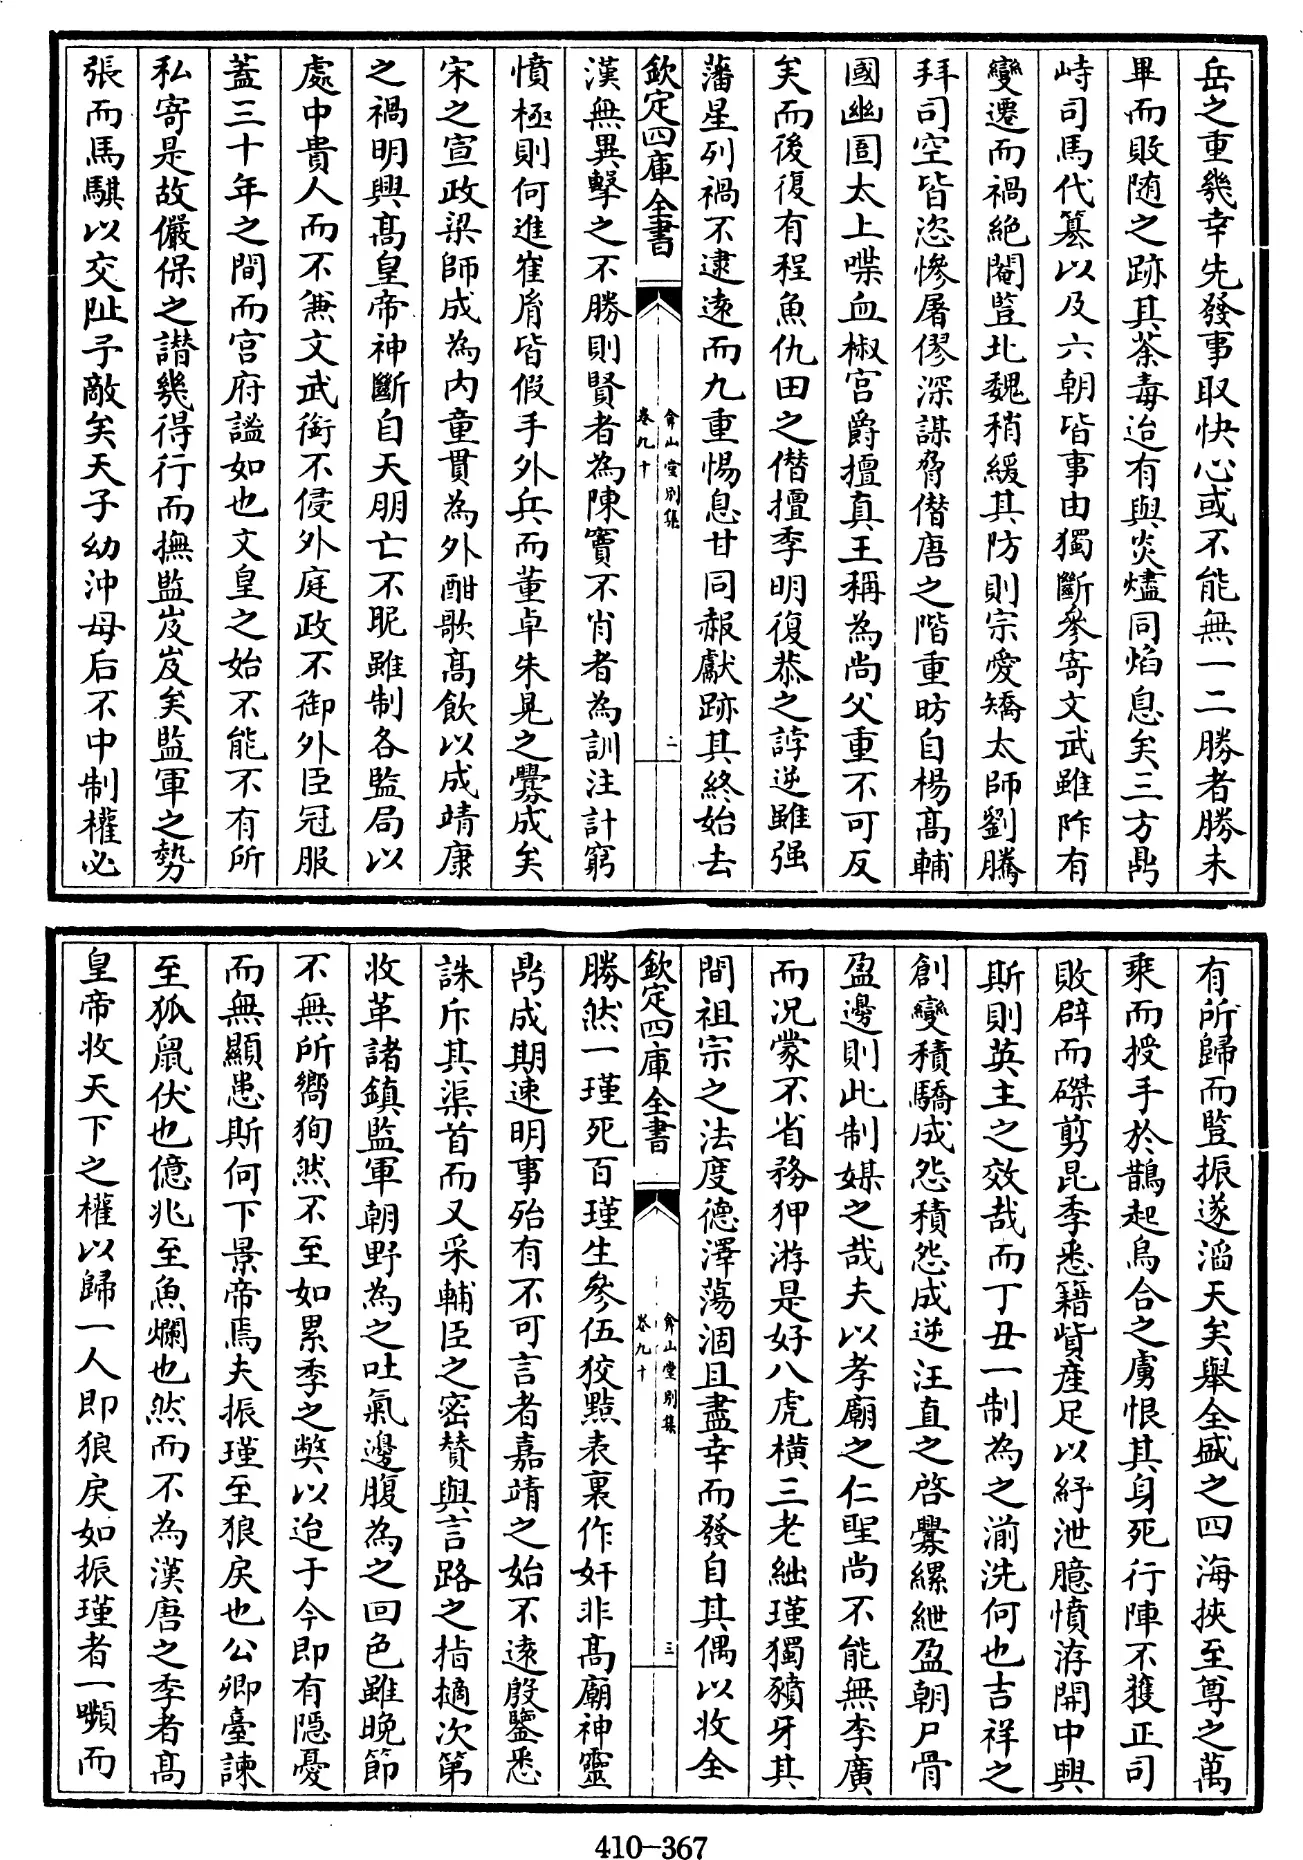 岳之重幾幸先發事取快心或不能無一二勝者勝未
畢而敗随之跡其荼毒迨有與炎燼同焰息矣三方鼎
峙司馬代簒以及六朝皆事由獨斷參寄文武雖阼有
變遷而禍絶閹豎北魏稍緩其防則宗愛矯太師劉騰
拜司空皆恣慘屠僇深謀脅僭唐之階重昉自楊髙輔
國幽圄太上喋血椒宫爵擅真王稱為尚父重不可反
矣而後復有程魚仇田之僭擅季明復恭之誖逆雖强
藩星列禍不逮遠而九重惕息甘同赧獻跡其終始去
欽定四庫全書
弇山堂别集
卷九十
二
漢無異擊之不勝則賢者為陳竇不肖者為訓注計窮
憤極則何進崔胤皆假手外兵而董卓朱晃之釁成矣
宋之宣政梁師成為内童貫為外酣歌髙飲以成靖康
之禍明興髙皇帝神斷自天朋亡不昵雖制各監局以
處中貴人而不兼文武銜不侵外庭政不御外臣冠服
葢三十年之間而宫府謐如也文皇之始不能不有所
私寄是故儼保之譛幾得行而撫監岌岌矣監軍之勢
張而馬騏以交阯予敵矣天子幼沖母后不中制權必
有所歸而豎振遂滔天矣舉全盛之四海挾至尊之萬
乘而授手於鵲起烏合之虜恨其身死行陣不獲正司
敗辟而磔剪昆季悉籍貲產足以紓泄臆憤洊開中興
斯則英主之效哉而丁丑一制為之湔洗何也吉祥之
創變積驕成怨積怨成逆汪直之啓釁縲紲盈朝尸骨
盈邊則此制媒之哉夫以孝廟之仁聖尚不能無李廣
而况蒙不省務狎游是好八虎横三老絀瑾獨豶牙其
間祖宗之法度德澤蕩涸且盡幸而發自其偶以收全
欽定四庫全書
弇山堂别集
卷九十
三
勝然一瑾死百瑾生參伍狡黠表裏作奸非髙廟神靈
鼎成期速明事殆有不可言者嘉靖之始不遠殷鑒悉
誅斥其渠首而又采輔臣之密賛與言路之指摘次第
收革諸鎮監軍朝野為之吐氣邊腹為之回色雖晚節
不無所嚮狥然不至如累季之弊以迨于今即有隱憂
而無顯患斯何下景帝焉夫振瑾至狼戾也公卿臺諫
至狐䑕伏也億兆至魚爛也然而不為漢唐之季者髙
皇帝收天下之權以歸一人即狼戾如振瑾者一嚬而
410-367